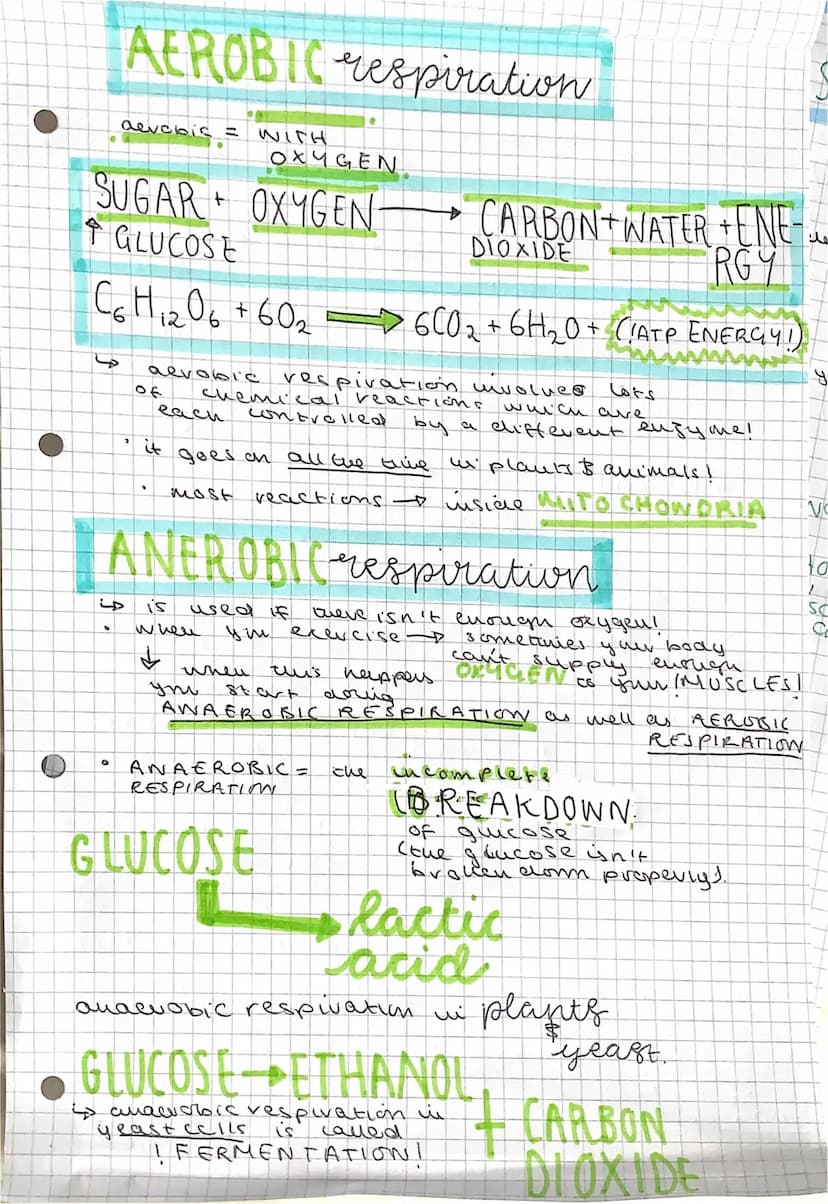 AEROBIC respiration
aerobic = WITH
OXYGEN
SUGAR + OXYGEN → CARBON + WATER + ENE-
↑ GLUCOSE DIOXIDE RGY
C₆H₁₂O₆ + 6O₂ → 6CO₂ + 6H₂O + (!ATP ENERGY!)
↳ aerobic respiration involves lots
of chemical reactions which are
each controlled by a different enzyme!
· it goes on all the time in plants & animals!
· most reactions → inside MITOCHONDRIA
ANEROBIC respiration
↳ is used if there isn't enough oxygen!
· when you exercise → sometimes your body
can't supply enough
↓ when this happens OXYGEN to your !MUSCLES!
you start doing
ANAEROBIC RESPIRATION as well as AEROBIC
RESPIRATION
· ANAEROBIC = the incomplete
RESPIRATION BREAKDOWN
of glucose
(the glucose isn't
broken down properly).
GLUCOSE
↳ lactic
acid
anaerobic respiration in plants
& yeast.
GLUCOSE → ETHANOL
↳ anaerobic respiration in + CARBON
yeast cells is called DIOXIDE
!FERMENTATION!